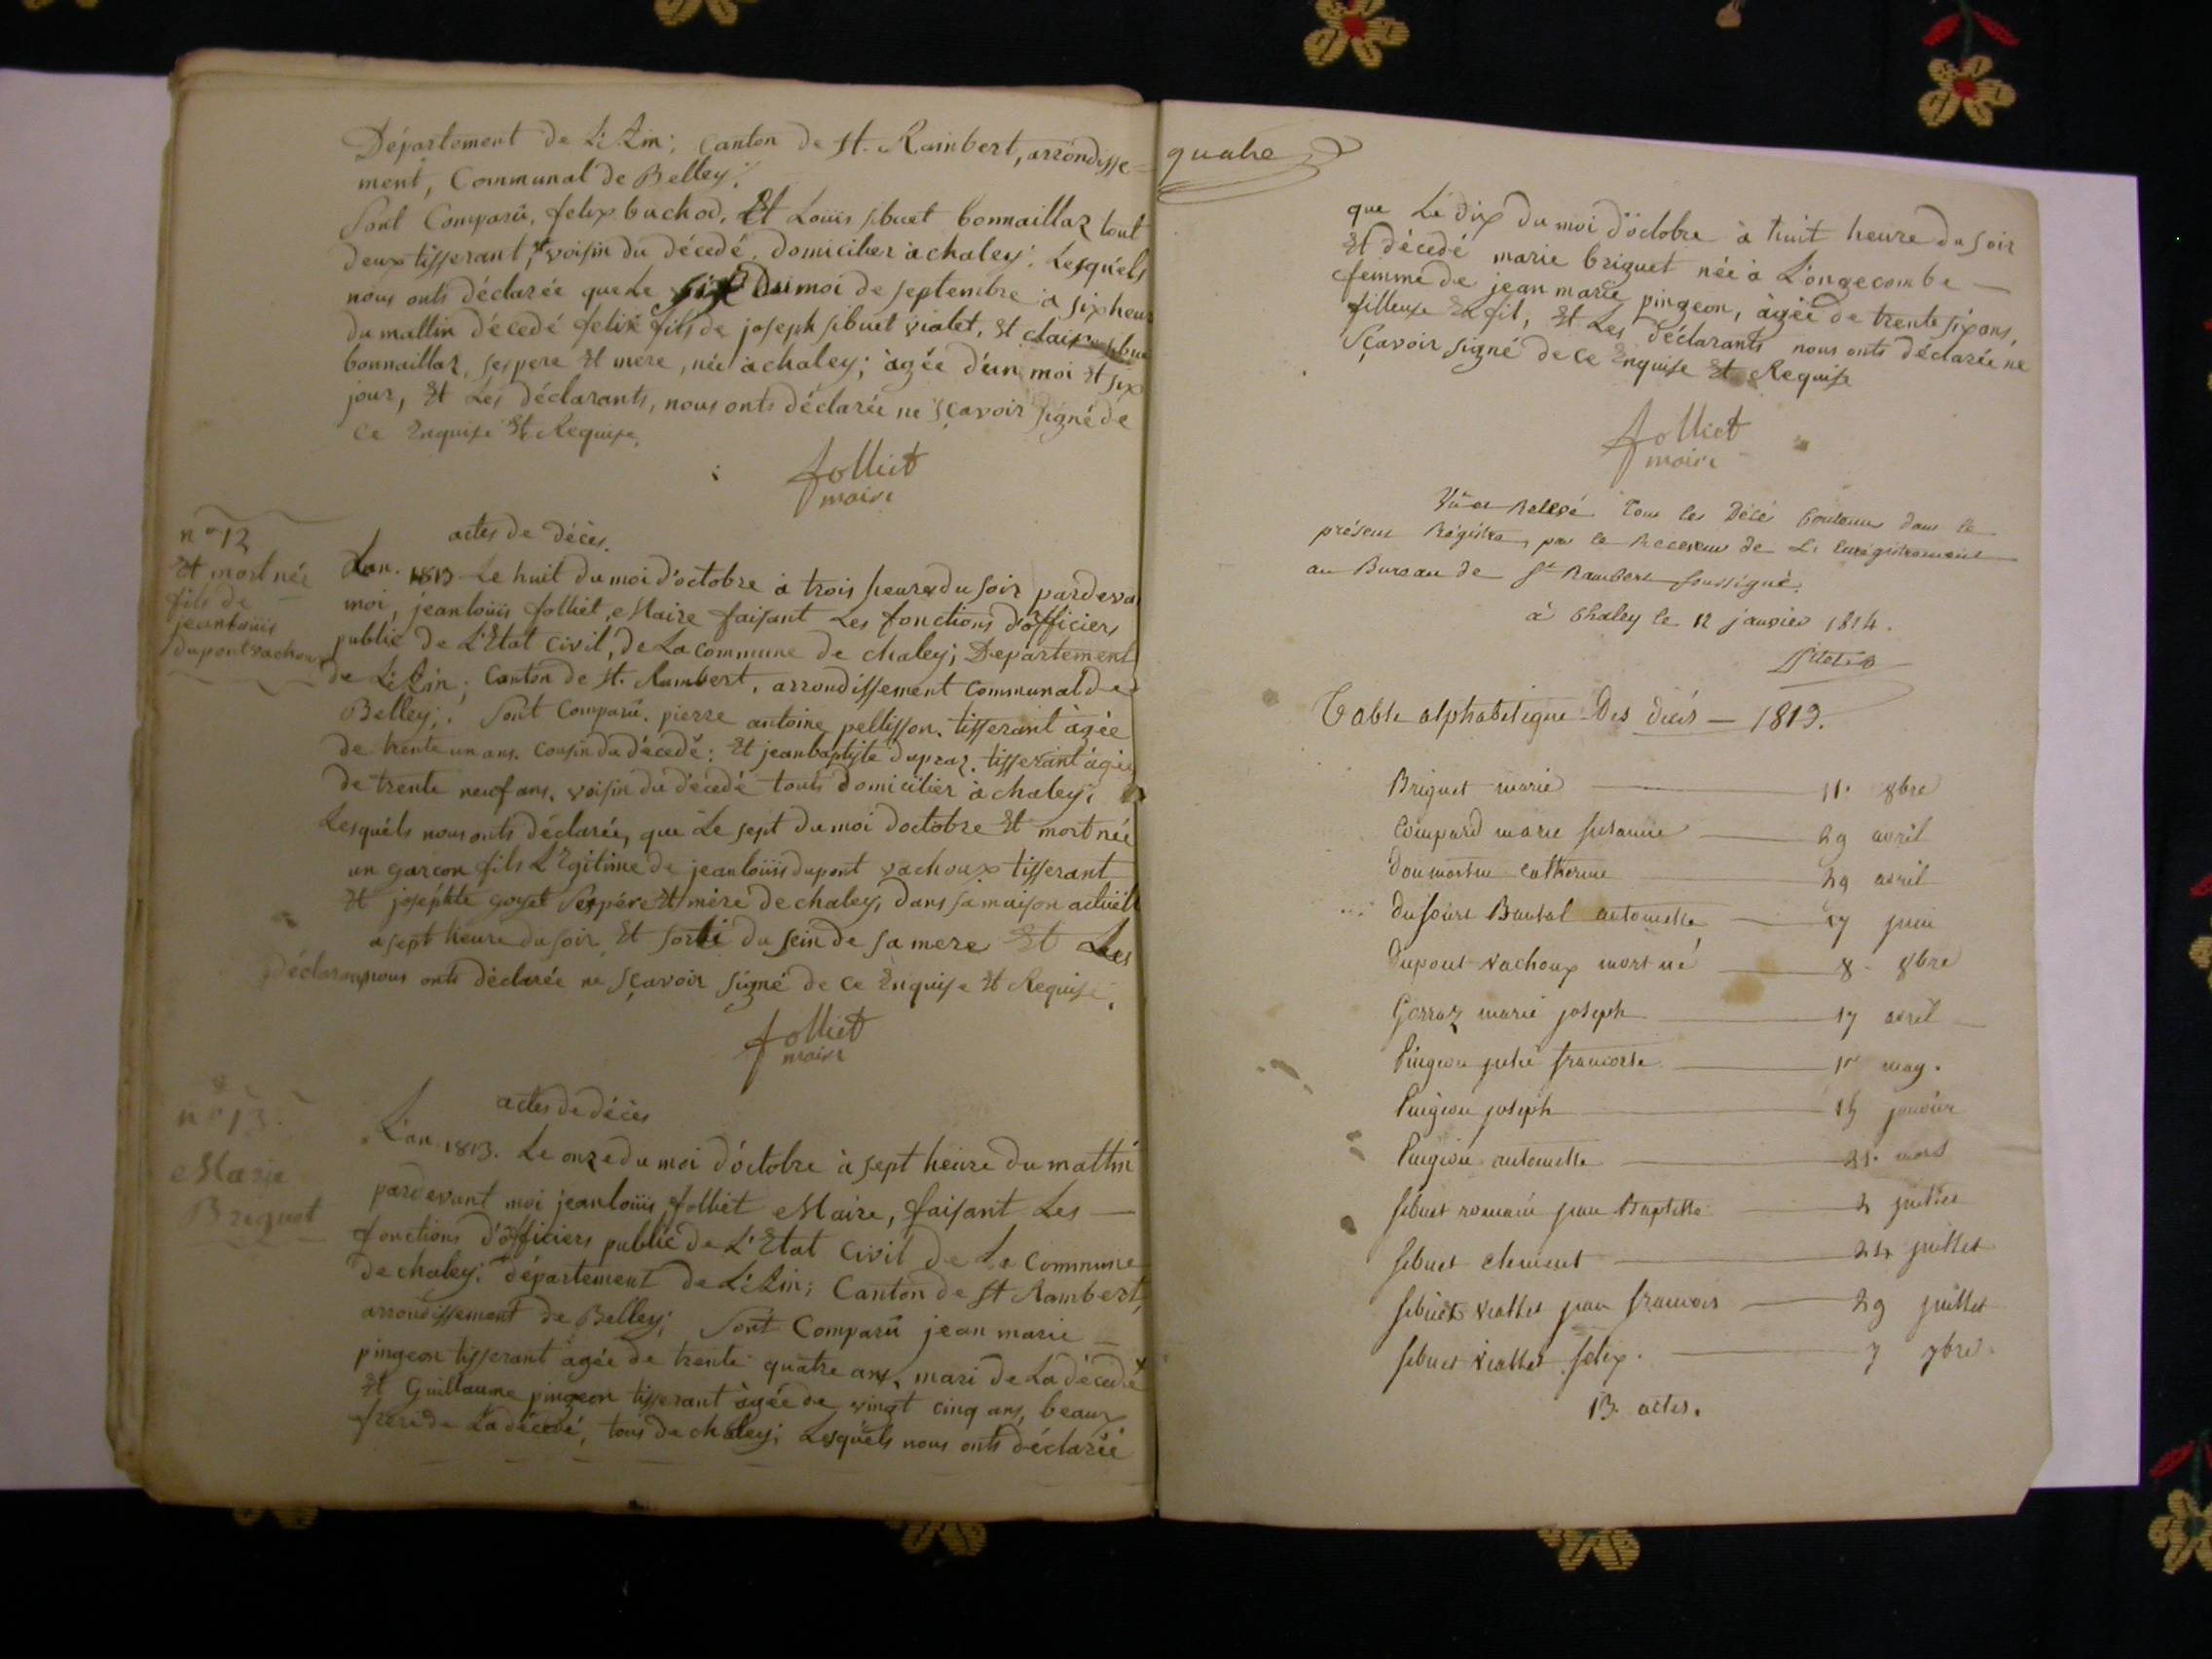 Département de L'Ain; Canton de St. Rambert, arrondisse=
ment, Communal de Belley;
Sont Comparû, felix buchod, Et Louis sibuet bonnaillaz tout
deux tisserant, voisin du décedé, domicilier à chaley; Lesquels
nous onts déclarée que Le six du moi de septembre à six heur
du mattin décedé felix fils de joseph sibuet violet, Et claire sibue
bonnaillaz, ses pere Et mere, née à chaley; àgée d'un moi Et six
jour, Et Les déclarants, nous onts déclarée ne sçavoir signé de
ce Enquise Et Requise.
folliet
maire
n° 12
Et mort née
fils de
jean louis
dupont vachoux
actes de décès.
L'an. 1813 Le huit du moi d'octobre à trois heures du soir pardeva
moi, jean louïs folliet, Maire faisant Les fonctions d'officiers
public de L'Etat Civil, de La commune de chaley; Département
de L'Ain; Canton de St. Rambert, arrondissement Communal de
Belley; Sont Comparû. pierre antoine pellisson. tisserant àgée
de trente un ans. Cousin du décedé; Et jean baptiste dupraz. tisserant àgée
de trente neuf ans. voisin du décedé touts domicilier à chaley;
Lesquels nous onts déclarée, que Le sept du moi doctobre Et mort née
un garcon fils L'Egitime de jean louïs dupont vachoux tisserant
Et josephte goyet ses pére Et mére de chaley, dans sa maison actuele
a sept heure du soir Et sorti du sein de sa mere Et Les
Déclarans nous onts déclarée ne sçavoir signé de ce Enquise Et Requise.
folliet
maire
n° 13
Marie
Briguet
actes de décès
L'an 1813. Le onze du moi d'octobre à sept heure du mattin
pardevant moi jean louis folliet Maire, faisant Les —
fonctions d'officiers public de L'Etat Civil de La Commune
de chaley; département de L'Ain; Canton de St Rambert,
arrondissement de Belley; Sont Comparû jean marie —
pingeon tisserant àgée de trente quatre ans, mari de La décedé
Et Guillaume pingeon tisserant àgée de vingt cinq ans, beaux
frere de La décedé, tous de chaley; Lesquels nous onts déclarée
quatre
que Le dix du moi d'octobre à huit heure du soir
Et décedé marie briguet née à Longecombe —
femme de jean marie pingeon, àgée de trente six ans,
filleuse En fil, Et Les déclarants nous onts déclarée ne
sçavoir signé de ce Enquise Et Requise
folliet
maire
Vû et Relevé Tous les Décès Contenus dans le
présent Régistre, par le Receveur de L'Enregistrement
au Bureau de St Rambert soussigné.
à Chaley le 12 janvier 1814.
Table alphabetique Des décès — 1813.
Briguet marie — 11. 8bre
Compard marie susanne — 29 avril
Doumortin Catherine — 29 avril
Dufour Bautal antoinette — 17 juin
Dupont vachoux mort né — 8. 8bre
Gorraz marie joseph — 17 avril
Pingeon julie francoise — 1er may.
Pingeon joseph — 15 janvier
Pingeon antoinette — 21. mars
Sibuet romain jean Baptiste — 2 juillet
Sibuet clement — 24 juillet
Sibuet viallet jean francois — 29 juillet
Sibuet viallet felix. — 7 7bre.
13. actes.